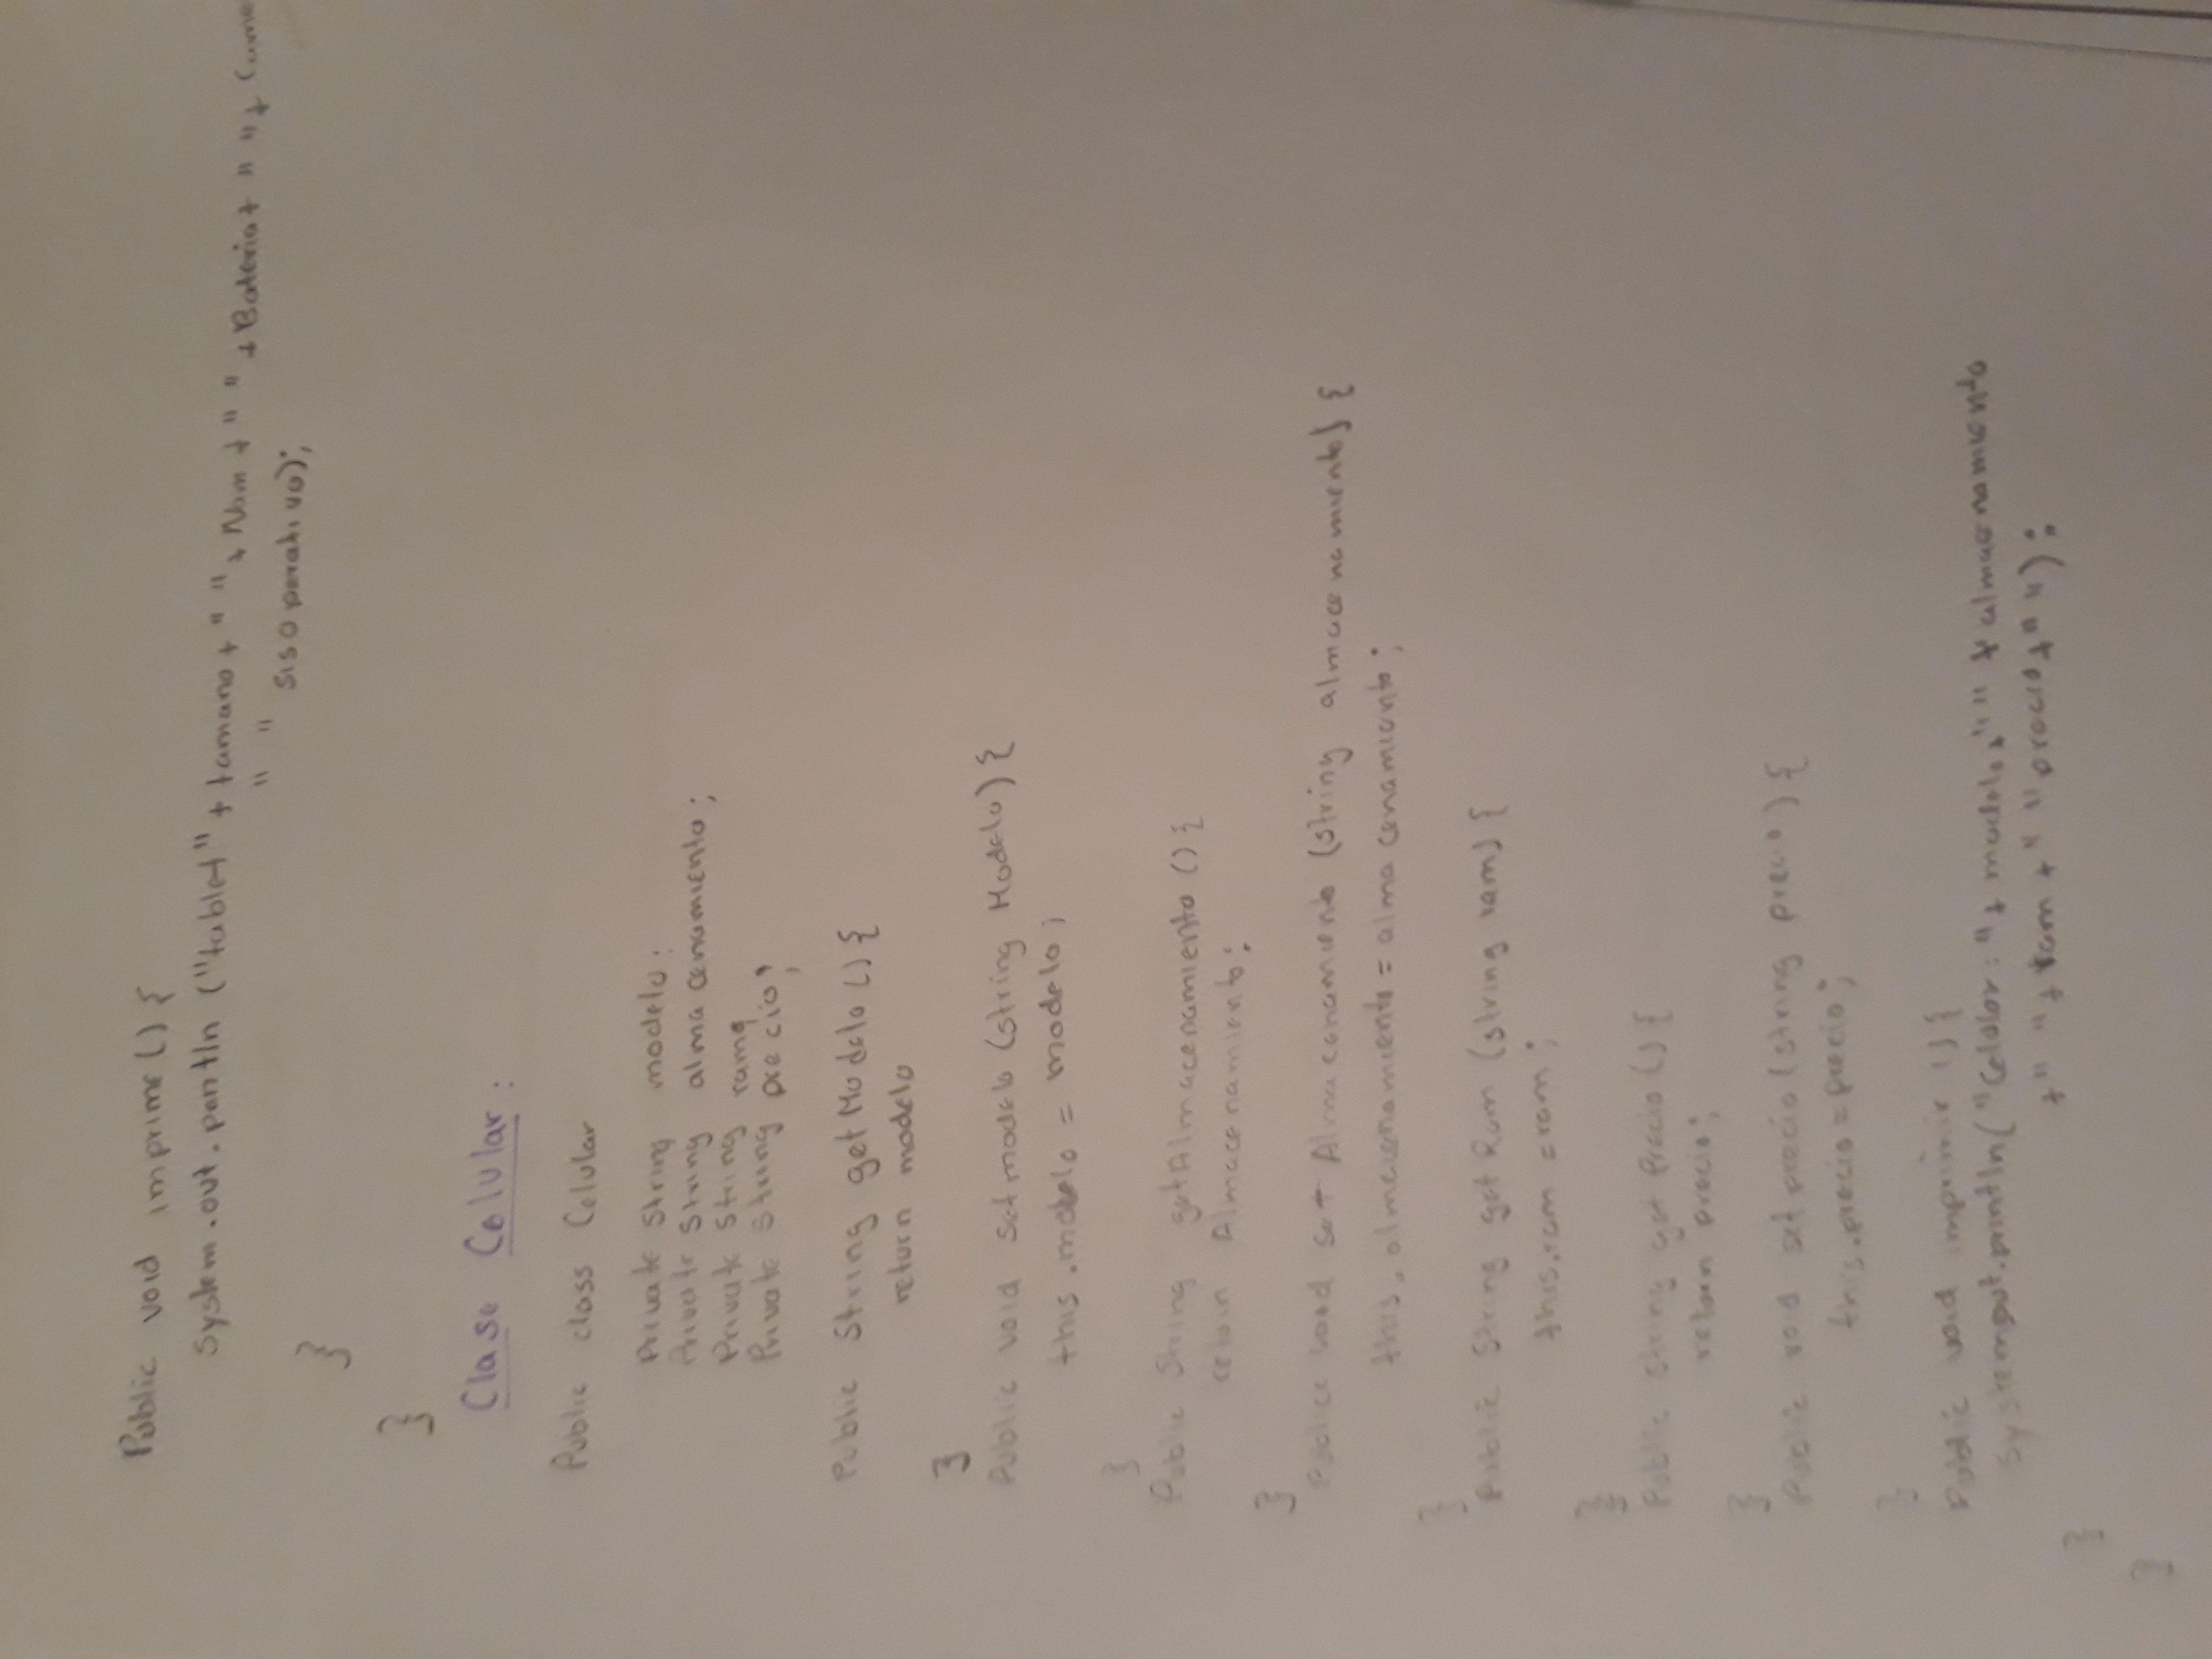 Public void imprime () {
System.out.pantln ("tablet" + tamano + " " + Nom + " " + Bateria + " " + Came
" " sisoperativo);
}
}
Clase Celular :
Public class Celular
Private String modelo;
Private String almacenamiento;
Private String ram;
Private String precio;
Public String getModelo () {
return modelo
}
Public void setmodelo (string Modelo) {
this.modelo = modelo;
}
Public String getAlmacenamiento () {
return Almacenamiento;
}
Public void set Almacenamiento (string almacenamiento) {
this.almacenamiento = almacenamiento;
}
Public String get Ram (string ram) {
this.ram = ram;
}
Public String get Precio () {
return precio;
}
Public void set precio (string precio) {
this.precio = precio;
}
Public void imprimir () {
System.out.println("Celular: "+ modelo +" " + almacenamiento
+ " " + ram + " " precio + " ");
}
}